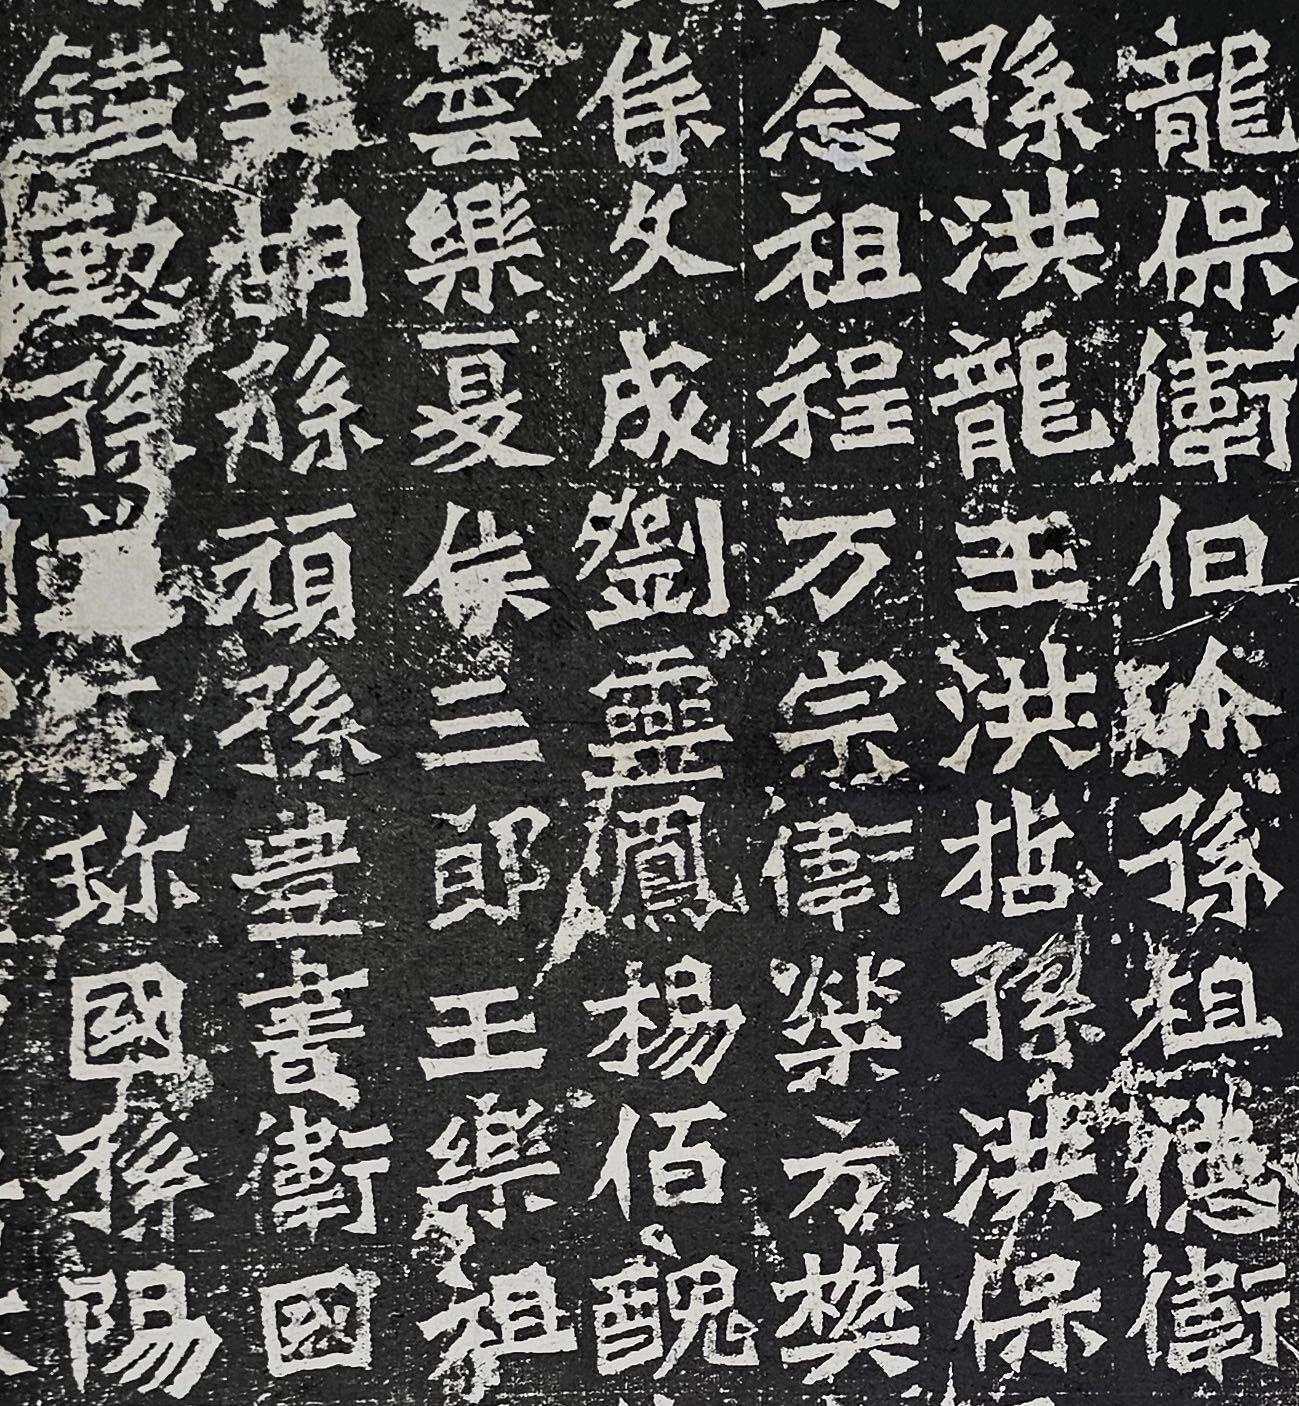 龍保衛伯孫祖德衛
孫洪龍王洪哲孫洪保
念祖程万宗衛榮方樊
侯文成劉靈鳳楊佰醜
雲樂夏侯三郎王樂祖
胡孫頑孫豊書衛國
錯勲孫珎國孫陽